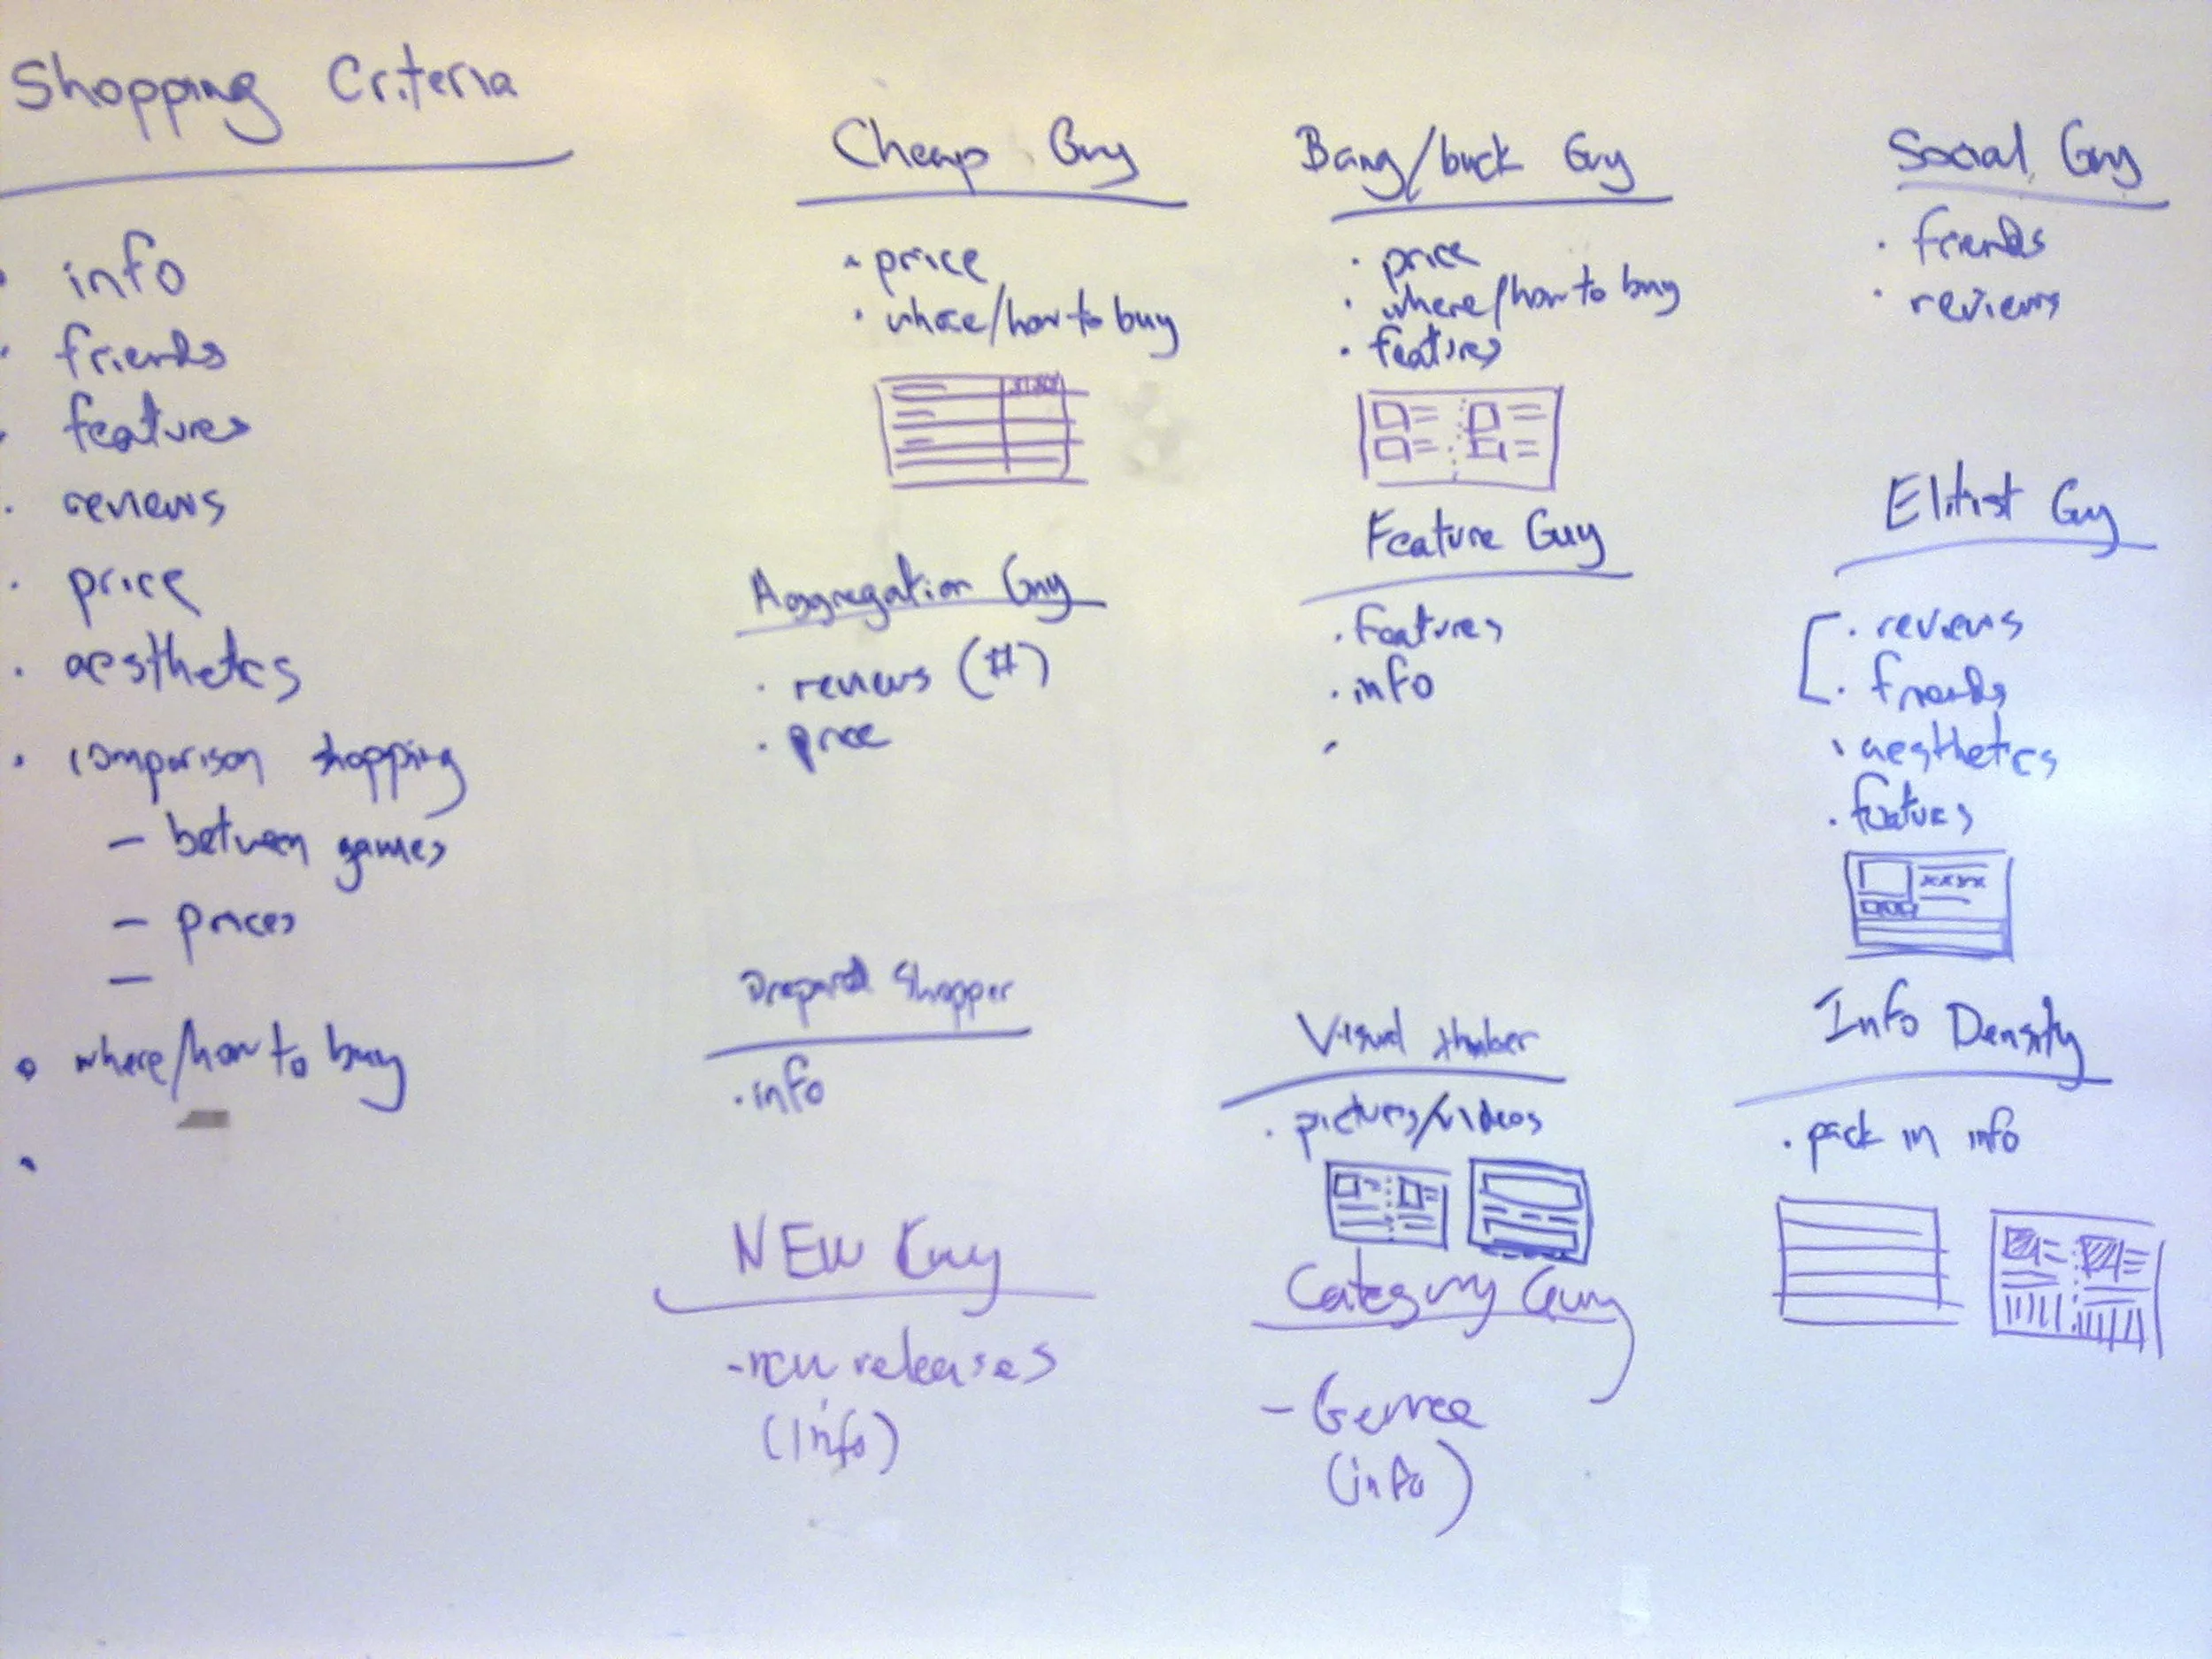 Shopping Criteria
· info
· friends
· features
· reviews
· price
· aesthetics
· comparison shopping
– between games
– prices
–
· where/how to buy
·
Cheap Guy
· price
· where/how to buy
Bang/buck Guy
· price
· where/how to buy
· features
Social Guy
· friends
· reviews
Aggregation Guy
· reviews (#)
· price
Feature Guy
· features
· info
·
Elitist Guy
· reviews
· friends
· aesthetics
· features
xxxx
Prepared Shopper
· info
Visual thinker
· pictures/videos
Info Density
· pack in info
NEW Guy
- new releases
(Info)
Category Guy
- Genree
(info)